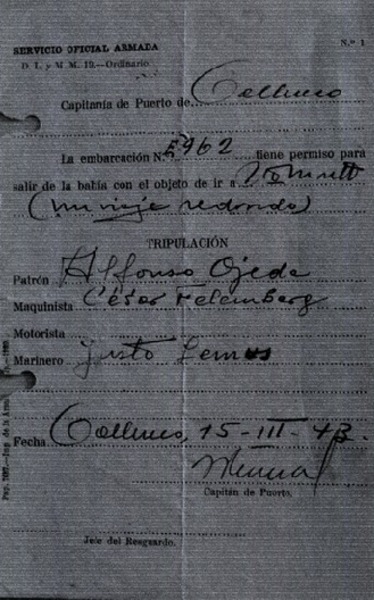 SERVICIO OFICIAL ARMADA
N.º 1
D. L. y M. M. 19.—Ordinario
Capitanía de Puerto de
La embarcación N.º 5962 tiene permiso para
salir de la bahía con el objeto de ir a
(un viaje redondo)
TRIPULACIÓN
Patrón Alfonso Ojeda
Maquinista César Felemberg
Motorista
Marinero Justo Lemus
Fecha 15-III-43.
Capitán de Puerto.
Jefe del Resguardo.